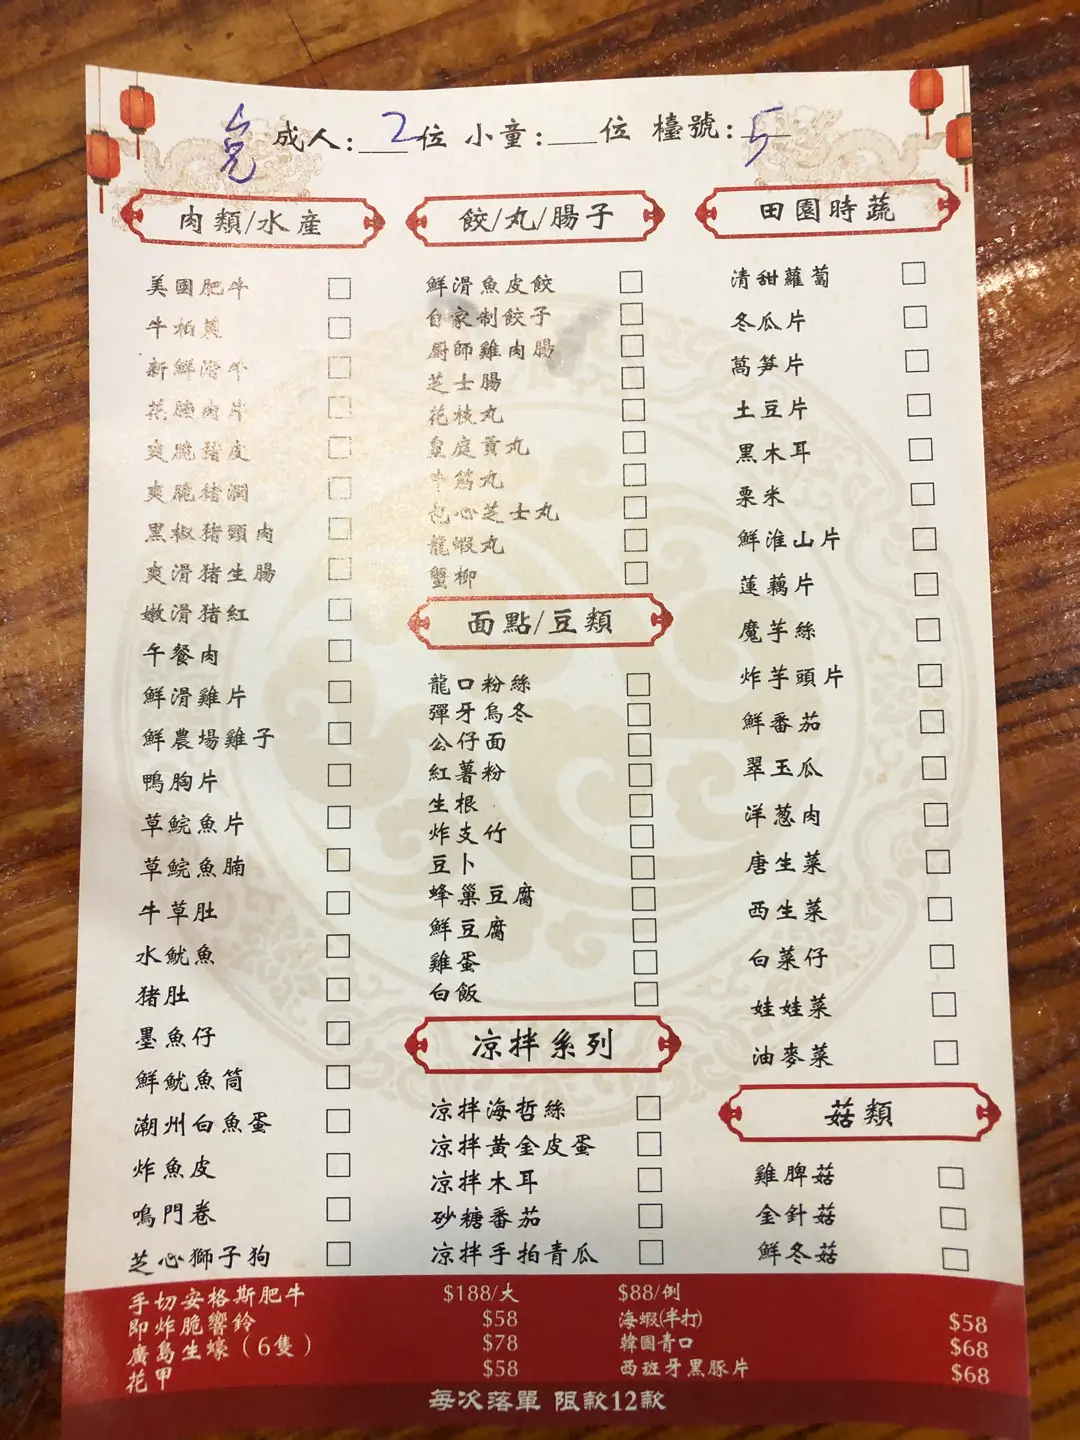 成人:2位 小童:__位 檯號:5
肉類/水產
美國肥牛
牛柏葉
新鮮滑牛
花腩肉片
爽脆豬皮
爽脆猪潤
黑椒猪頸肉
爽滑猪生腸
嫩滑猪紅
午餐肉
鮮滑雞片
鮮農場雞子
鴨胸片
草鯇魚片
草鯇魚腩
牛草肚
水魷魚
猪肚
墨魚仔
鮮魷魚筒
潮州白魚蛋
炸魚皮
鳴門卷
芝心獅子狗
餃/丸/腸子
鮮滑魚皮餃
自家制餃子
廚師雞肉腸
芝士腸
花枝丸
皇庭貢丸
牛筋丸
包心芝士丸
龍蝦丸
蟹柳
面點/豆類
龍口粉絲
彈牙烏冬
公仔面
紅薯粉
生根
炸支竹
豆卜
蜂巢豆腐
鮮豆腐
雞蛋
白飯
凉拌系列
凉拌海哲絲
凉拌黃金皮蛋
凉拌木耳
砂糖番茄
凉拌手拍青瓜
田園時蔬
清甜蘿蔔
冬瓜片
萵笋片
土豆片
黑木耳
粟米
鮮淮山片
蓮藕片
魔芋絲
炸芋頭片
鮮番茄
翠玉瓜
洋葱肉
唐生菜
西生菜
白菜仔
娃娃菜
油麥菜
菇類
雞脾菇
金針菇
鮮冬菇
手切安格斯肥牛 $188/大 $88/例
即炸脆響鈴 $58 海蝦(半打) $58
廣島生蠔（6隻） $78 韓國青口 $68
花甲 $58 西班牙黑豚片 $68
每次落單 限款12款